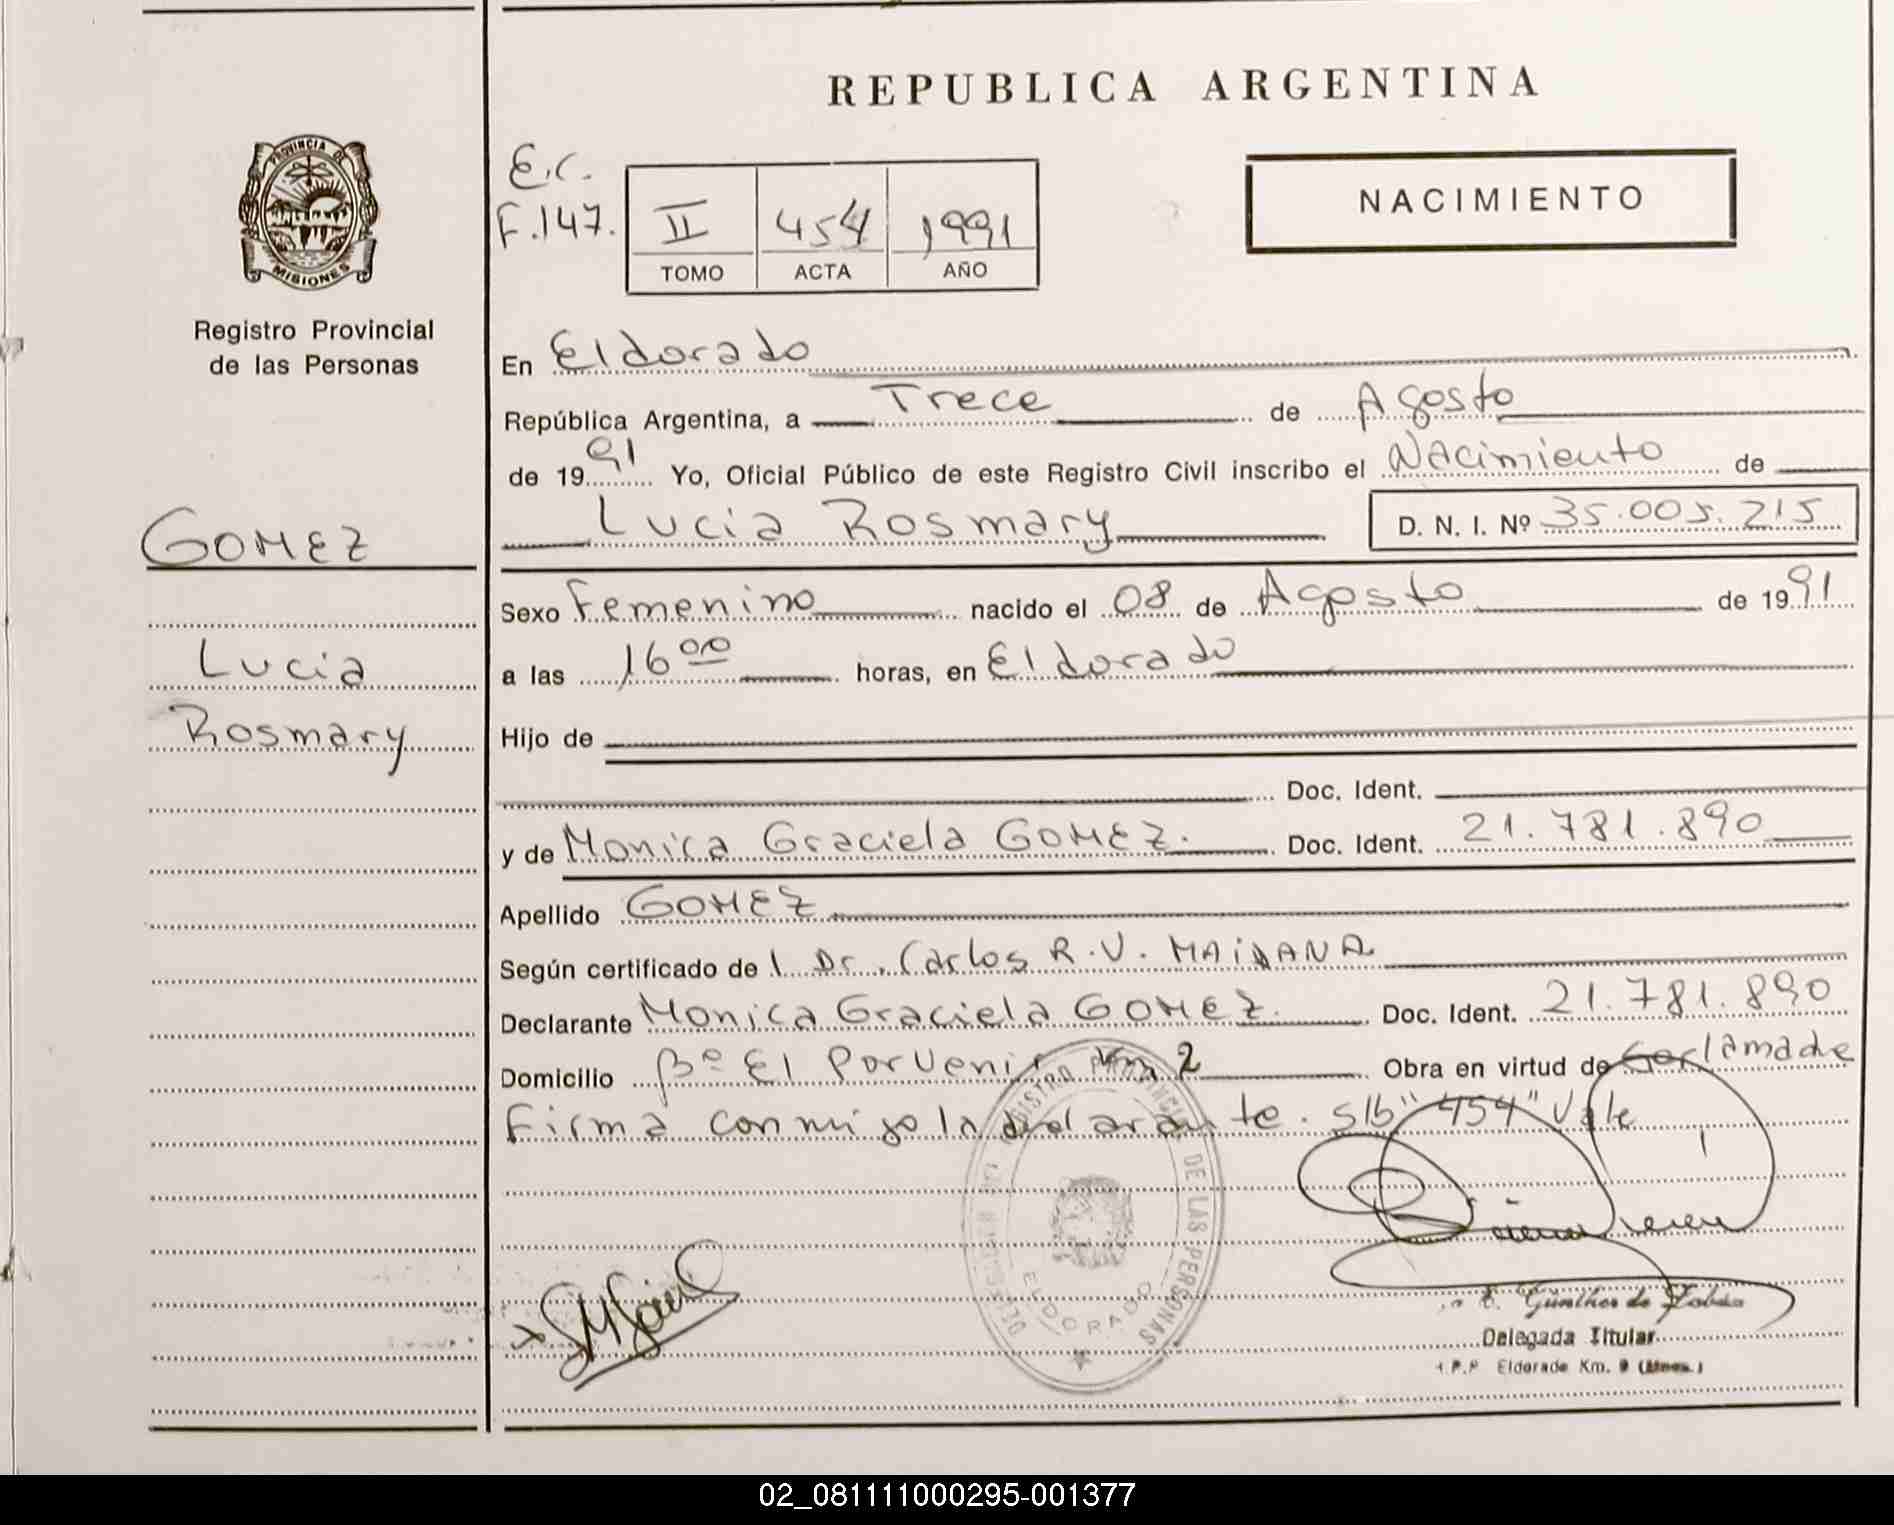 REPUBLICA ARGENTINA
PROVINCIA DE
MISIONES
Registro Provincial
de las Personas
E.C.
F.147.
II 454 1991
TOMO ACTA AÑO
NACIMIENTO
En Eldorado
República Argentina, a Trece de Agosto
de 1991 Yo, Oficial Público de este Registro Civil inscribo el Nacimiento de
Lucia Rosmary D. N. I. Nº 35.005.215
GOMEZ
Lucia
Rosmary
Sexo Femenino nacido el 08 de Agosto de 1991
a las 16 00 horas, en Eldorado
Hijo de
Doc. Ident.
y de Monica Graciela GOMEZ. Doc. Ident. 21.781.890
Apellido GOMEZ
Según certificado de l Dr. Carlos R.V. MAIDANA
Declarante Monica Graciela GOMEZ. Doc. Ident. 21.781.890
Domicilio Bº El Porvenir Km 2 Obra en virtud de ser la madre
Firma conmigo la declarante. S/b "454" Vale
REGISTRO PROVINCIAL DE LAS PERSONAS
ELDORADO
E. Günther de
Delegada Titular
Eldorado Km. 9 (Mnes.)
02_081111000295-001377